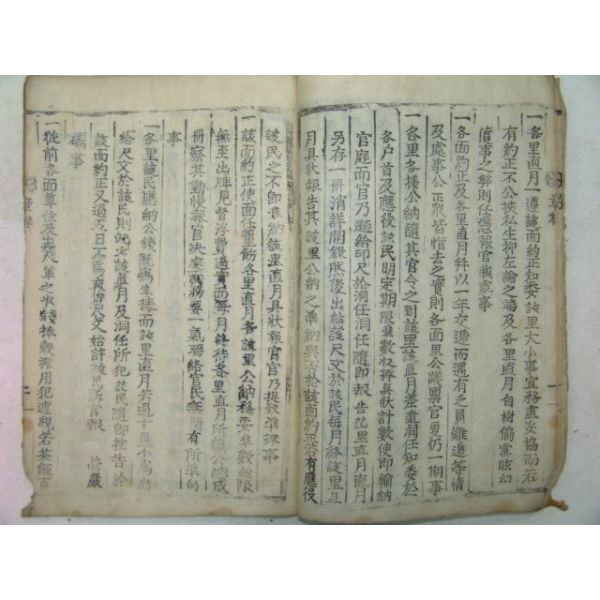 一各里直月一遵該面約正知委該里大小事宜務盡妥協而若
有約正不公挾私生抑左論之蔼及各里直月自樹備黨眩幻
借事之弊則任悉報官裁處事
一各面約正及各里直月并以一年交遞而遇有乏員難遞等情
及處事公正衆皆惜去之實則各面里公議禀官更仍一期事
一各里各樣公納隨其官令之到該里該直月差遣洞任知委於
各户首及應役該民明定期限準數收捧具狀計數使即輸納
官庭而官乃題給印尺於洞任洞任隨即報告記里直月直月
另存一冊消詳開錄然後出給該尺文於該民每月終該里直
月具狀報告其該里公納之準納與否於該面約正若有應役
該民之不即準納該里直月具狀報官官乃捉致準捧事
一該面約正使面任董飭各里直月各該里公納務要準數趁限
無至出牌見督浮費過實而每月終待各里直月所報公納成
冊察其勤慢稟官決處而務要一氣聯絡官民無間有所準的
事
一各里該民應納公錢既爲準捧而該里直月若過十日不爲出
給尺文於該民則此定該直月及洞任所犯該民隨即控告於
該面約正又過五日不爲覓即尺文始許該民訴官報 營嚴
礪事
一從前各面尊位及正尺輩之收錢捧穀濫用犯遣視若茶飯百